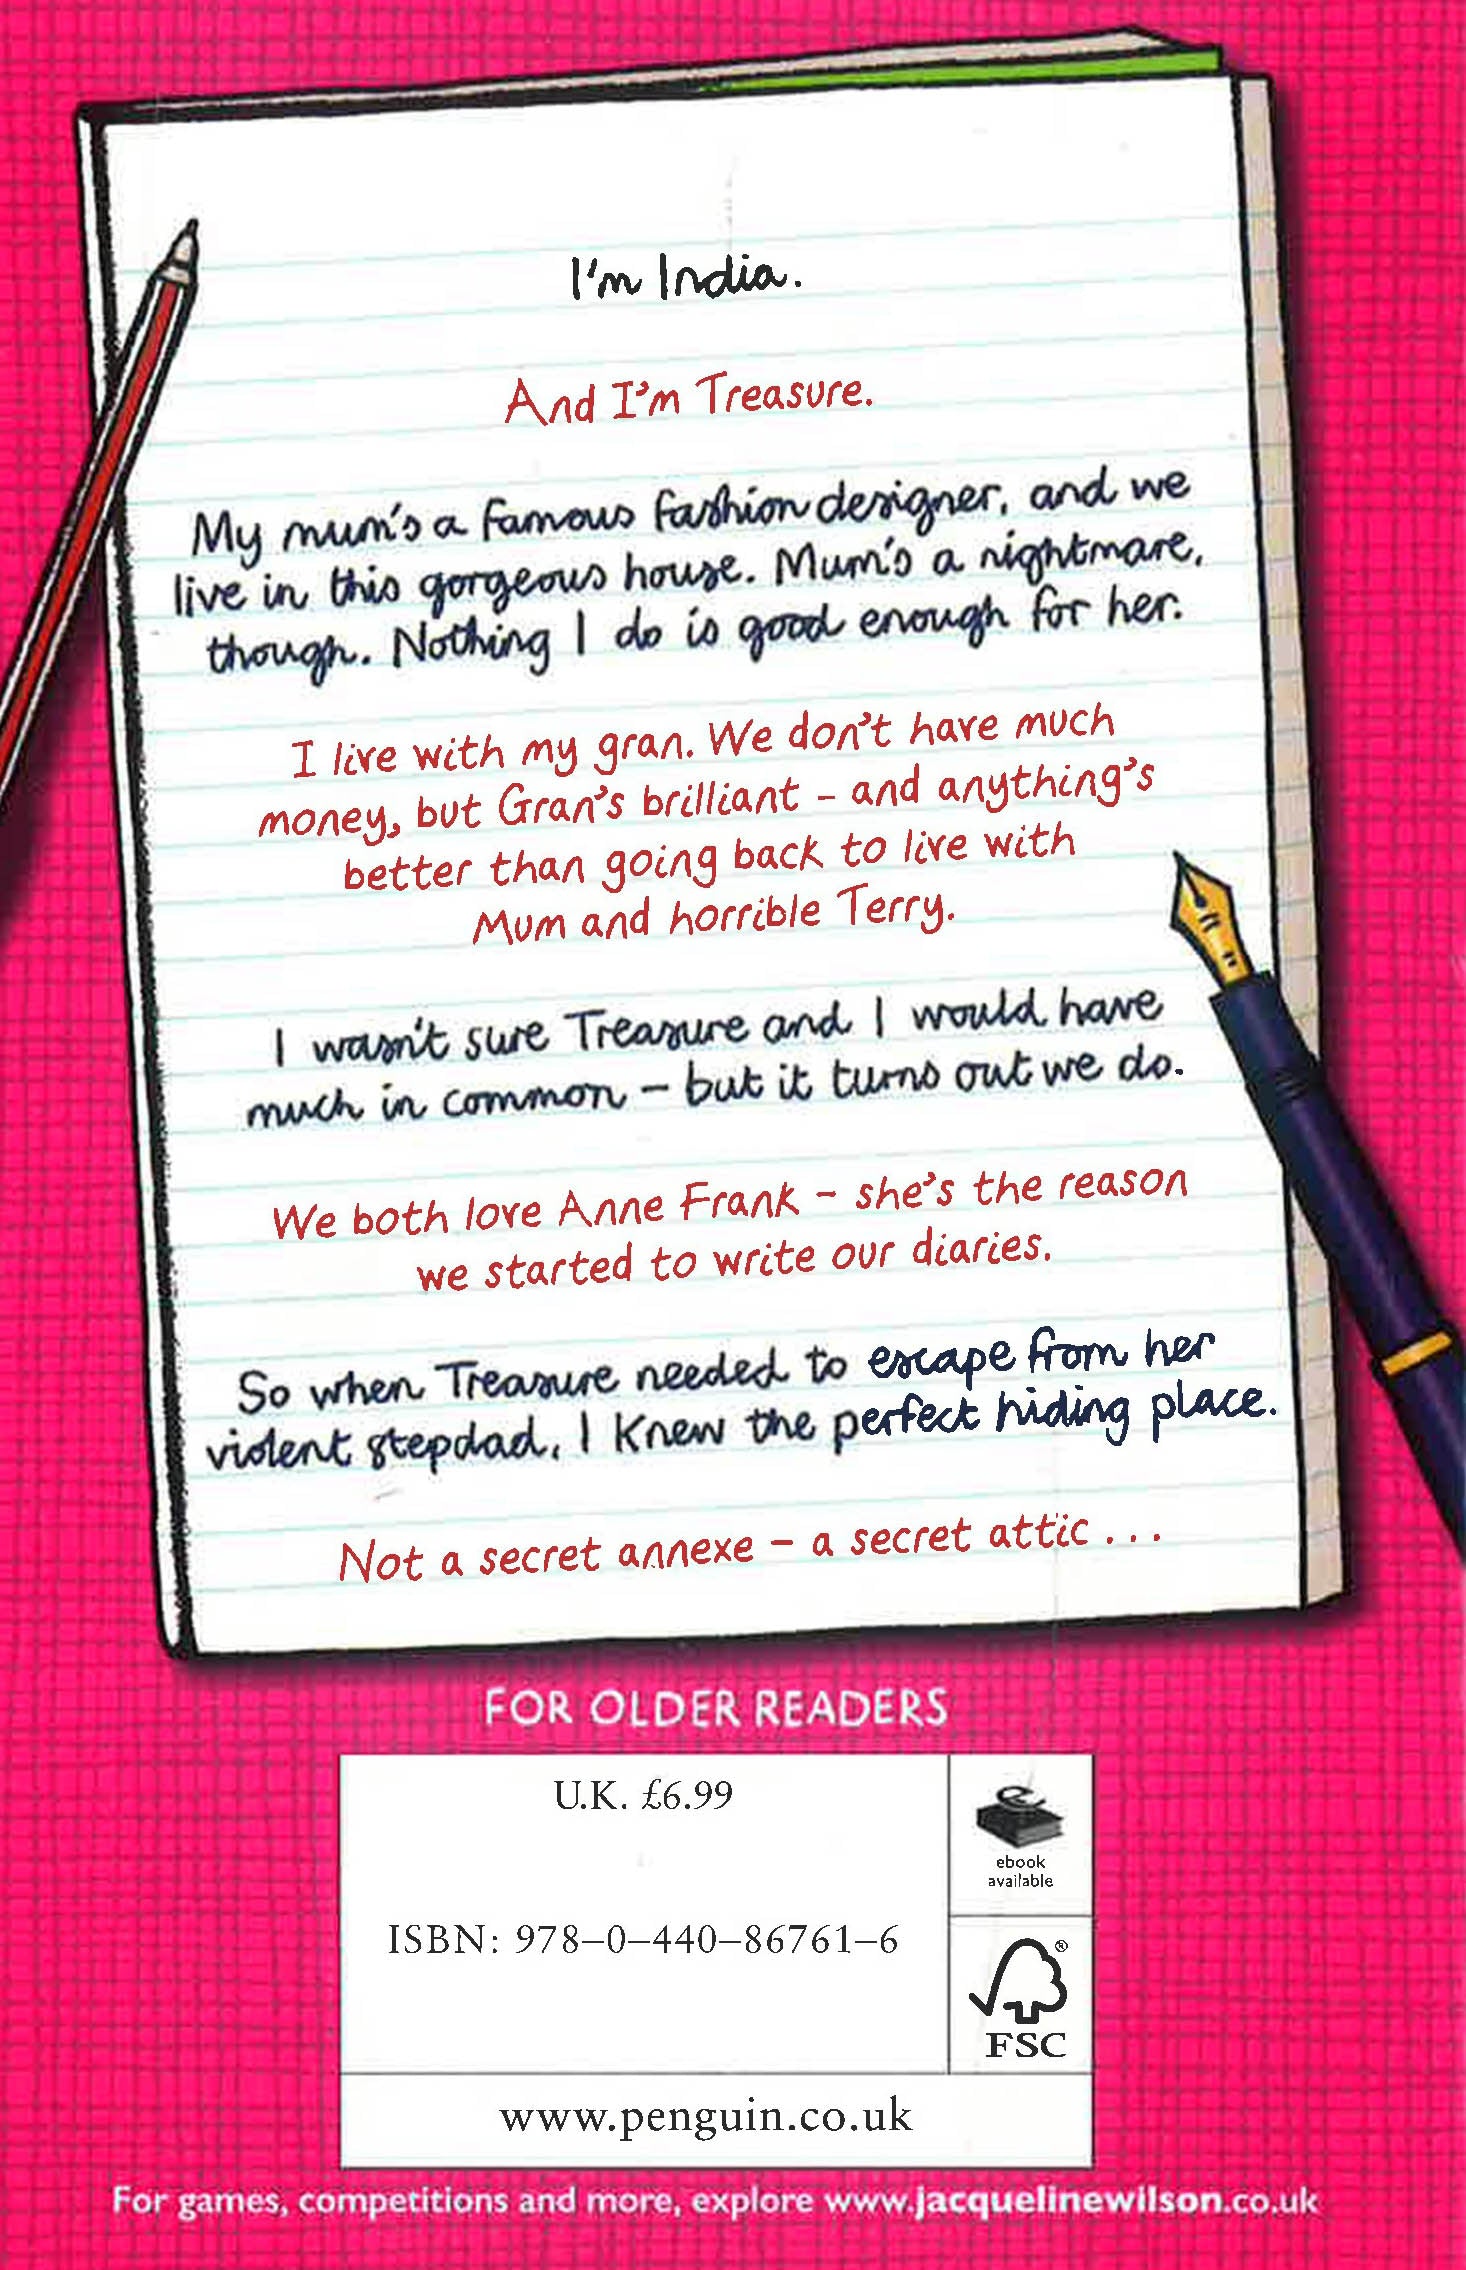 I'm India.
And I'm Treasure.
My mum's a famous fashion designer, and we
live in this gorgeous house. Mum's a nightmare,
though. Nothing I do is good enough for her.
I live with my gran. We don't have much
money, but Gran's brilliant – and anything's
better than going back to live with
Mum and horrible Terry.
I wasn't sure Treasure and I would have
much in common – but it turns out we do.
We both love Anne Frank – she's the reason
we started to write our diaries.
So when Treasure needed to escape from her
violent stepdad, I knew the perfect hiding place.
Not a secret annexe – a secret attic . . .
FOR OLDER READERS
U.K. £6.99
ebook
available
ISBN: 978–0–440–86761–6
®
FSC
www.penguin.co.uk
For games, competitions and more, explore www.jacquelinewilson.co.uk